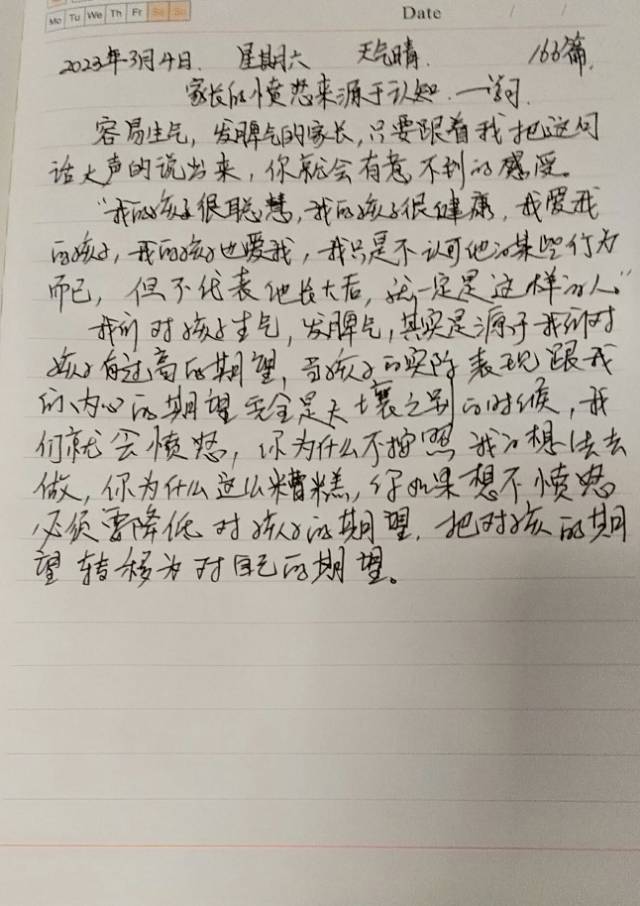 Mo Tu We Th Fr Sa Su
Date / /
2023年3月4日. 星期六 天气晴. 166篇.
家长的愤怒来源于认知.
容易生气,发脾气的家长,只要跟着我把这句
话大声的说出来,你就会有意不到的感受。
“我的孩子很聪慧,我的孩子很健康,我爱我
的孩子,我的孩子也爱我,我只是不认可他的某些行为
而已,但不代表他长大后,就一定是这样的人。”
我们对孩子生气,发脾气,其实是源于我们对
孩子有过高的期望,当孩子的实际表现跟我
们内心的期望完全是天壤之别的时候,我
们就会愤怒,你为什么不按照我的想法去
做,你为什么这么糟糕,你如果想不愤怒
必须要降低对孩子的期望.把对孩的期
望转移为对自己的期望。